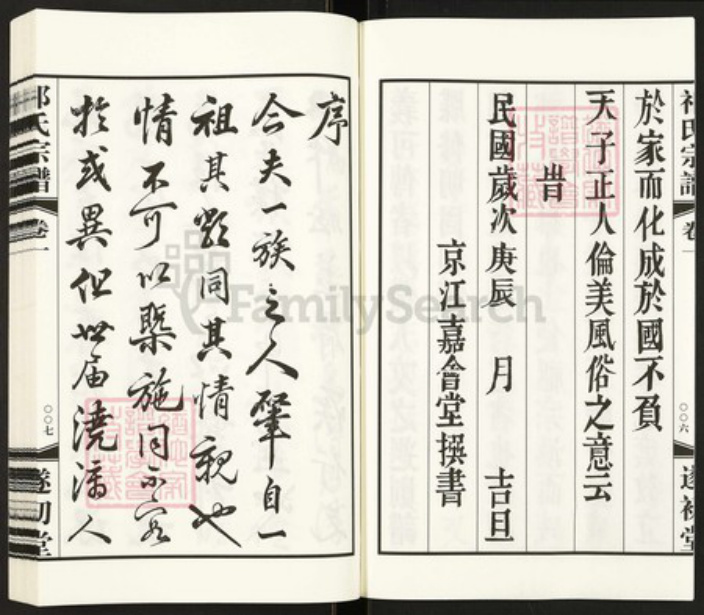 於家而化成於國不負
天子正人倫美風俗之意云
昔
民國歲次庚辰 月 吉旦
京江嘉會堂撰書
氏宗譜
卷一
〇〇六
遂初堂
序
今夫一族之人肇自一
祖其勢同其情親也
情不可以槩施同不容
於或異但世屆澆漓人
氏宗譜
卷一
〇〇七
遂初堂
FamilySearch